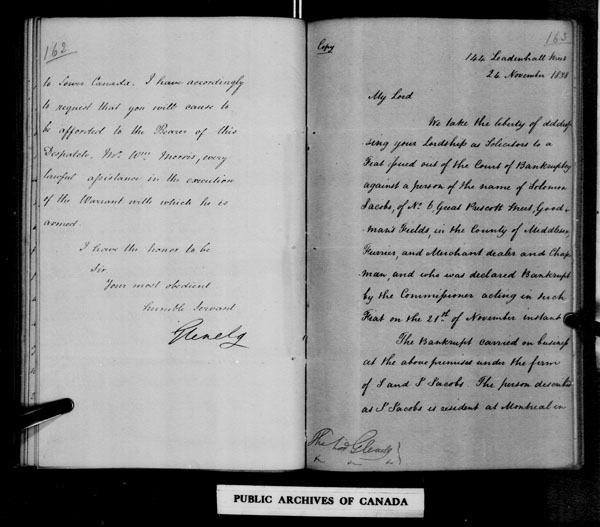 162
to Lower Canada. I have accordingly
to request that you will cause to
be afforded to the Bearer of this
Despatch, Mr. Wm Morris, every
lawful assistance in the execution
of the Warrant with which he is
armed.
I have the honor to be
Sir
Your most obedient
humble Servant
Glenelg
163
Copy
144 Leadenhall Street
24 November 1838
My Lord
We take the liberty of addres
sing your Lordship as Solicitors to a
Fiat issued out of the Court of Bankruptcy
against a person of the name of Solomon
Jacobs, of No. 6 Great Prescott Street, Good-
man's Fields, in the County of Middlesex
Furrier, and Merchant dealer and Chap
man, and who was declared Bankrupt
by the Commissioner acting in such
Fiat on the 21st of November instant
The Bankrupt carried on business
at the above premises under the firm
of S and S Jacobs The person described
as S Jacobs is resident at Montreal in
The Lord Glenelg
PUBLIC ARCHIVES OF CANADA